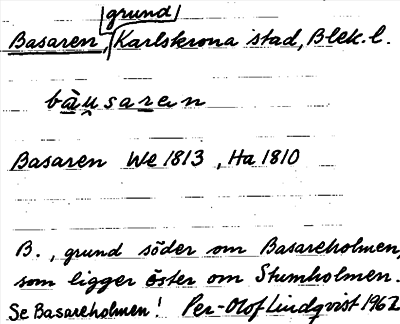 grund
Basaren, Karlskrona stad, Blek. l.
bàu̯saren
Basaren We 1813, Ha 1810
B., grund söder om Basareholmen,
som ligger öster om Stumholmen.
Se Basareholmen! Per-Olof Lindqvist 1962